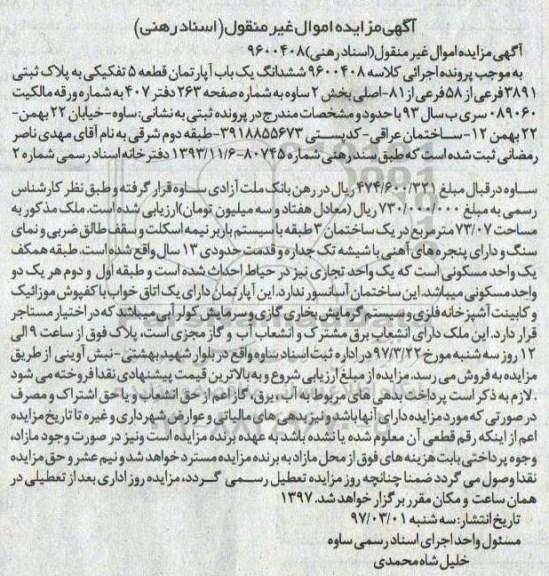 آگهی مزایده اموال غیر منقول (اسناد رهنی)
آگهی مزایده اموال غیر منقول (اسناد رهنی) ۹۶۰۰۴۰۸
به موجب پرونده اجرائی کلاسه ۹۶۰۰۴۰۸ ششدانگ یک باب آپارتمان قطعه ۵ تفکیکی به پلاک ثبتی
۳۸۹۱ فرعی از ۵۸ فرعی از ۸۱-اصلی بخش ۲ ساوه به شماره صفحه ۲۶۳ دفتر ۴۰۷ به شماره ورقه مالکیت
۰۸۹۰۶۰ سری ب سال ۹۳ با حدود و مشخصات مندرج در پرونده ثبتی به نشانی: ساوه-خیابان ۲۲ بهمن-
۲۲ بهمن ۱۲-ساختمان عراقی-کدپستی ۳۹۱۸۸۵۵۶۷۳-طبقه دوم شرقی به نام آقای مهدی ناصر
رمضانی ثبت شده است که طبق سند رهنی شماره ۸۰۷۴۵-۱۳۹۳/۱۱/۶ دفترخانه اسناد رسمی شماره ۲
ساوه در قبال مبلغ ۴۷۴/۶۰۰/۳۲۱ ریال در رهن بانک ملت آزادی ساوه قرار گرفته و طبق نظر کارشناس
رسمی به مبلغ ۷۳۰/۰۰۰/۰۰۰ ریال (معادل هفتاد و سه میلیون تومان) ارزیابی شده است. ملک مذکور به
مساحت ۷۳/۰۷ مترمربع در یک ساختمان ۳ طبقه با سیستم باربر نیمه اسکلت و سقف طاق ضربی و نمای
سنگ و دارای پنجره های آهنی با شیشه تک جداره و قدمت حدودی ۱۳ سال واقع شده است. طبقه همکف
یک واحد مسکونی است که یک واحد تجاری نیز در حیاط احداث شده است و طبقه اول و دوم هر یک دو
واحد مسکونی میباشد. این ساختمان آسانسور ندارد. این آپارتمان دارای یک اتاق خواب با کفپوش موزائیک
و کابینت آشپزخانه فلزی و سیستم گرمایش بخاری گازی و سرمایش کولر آبی میباشد که در اختیار مستاجر
قرار دارد. این ملک دارای انشعاب برق مشترک و انشعاب آب و گاز مجزی است، پلاک فوق از ساعت ۹ الی
۱۲ روز سه شنبه مورخ ۹۷/۳/۲۲ در اداره ثبت اسناد ساوه واقع در بلوار شهید بهشتی-نبش آوینی از طریق
مزایده به فروش می رسد. مزایده از مبلغ ارزیابی شروع و به بالاترین قیمت پیشنهادی نقدا فروخته می شود
.لازم به ذکر است پرداخت بدهی های مربوط به آب، برق، گاز اعم از حق انشعاب و یا حق اشتراک و مصرف
در صورتی که مورد مزایده دارای آنها باشد و نیز بدهی های مالیاتی و عوارض شهرداری و غیره تا تاریخ مزایده
اعم از اینکه رقم قطعی آن معلوم شده یا نشده باشد به عهده برنده مزایده است ونیز در صورت وجود مازاد،
وجوه پرداختی بابت هزینه های فوق از محل مازاد به برنده مزایده مسترد خواهد شد و نیم عشر و حق مزایده
نقدا وصول می گردد ضمنا چنانچه روز مزایده تعطیل رسمی گردد، مزایده روز اداری بعد از تعطیلی در
همان ساعت و مکان مقرر برگزار خواهد شد. ۱۳۹۷
تاریخ انتشار: سه شنبه ۹۷/۰۳/۰۱
مسئول واحد اجرای اسناد رسمی ساوه
خلیل شاه محمدی